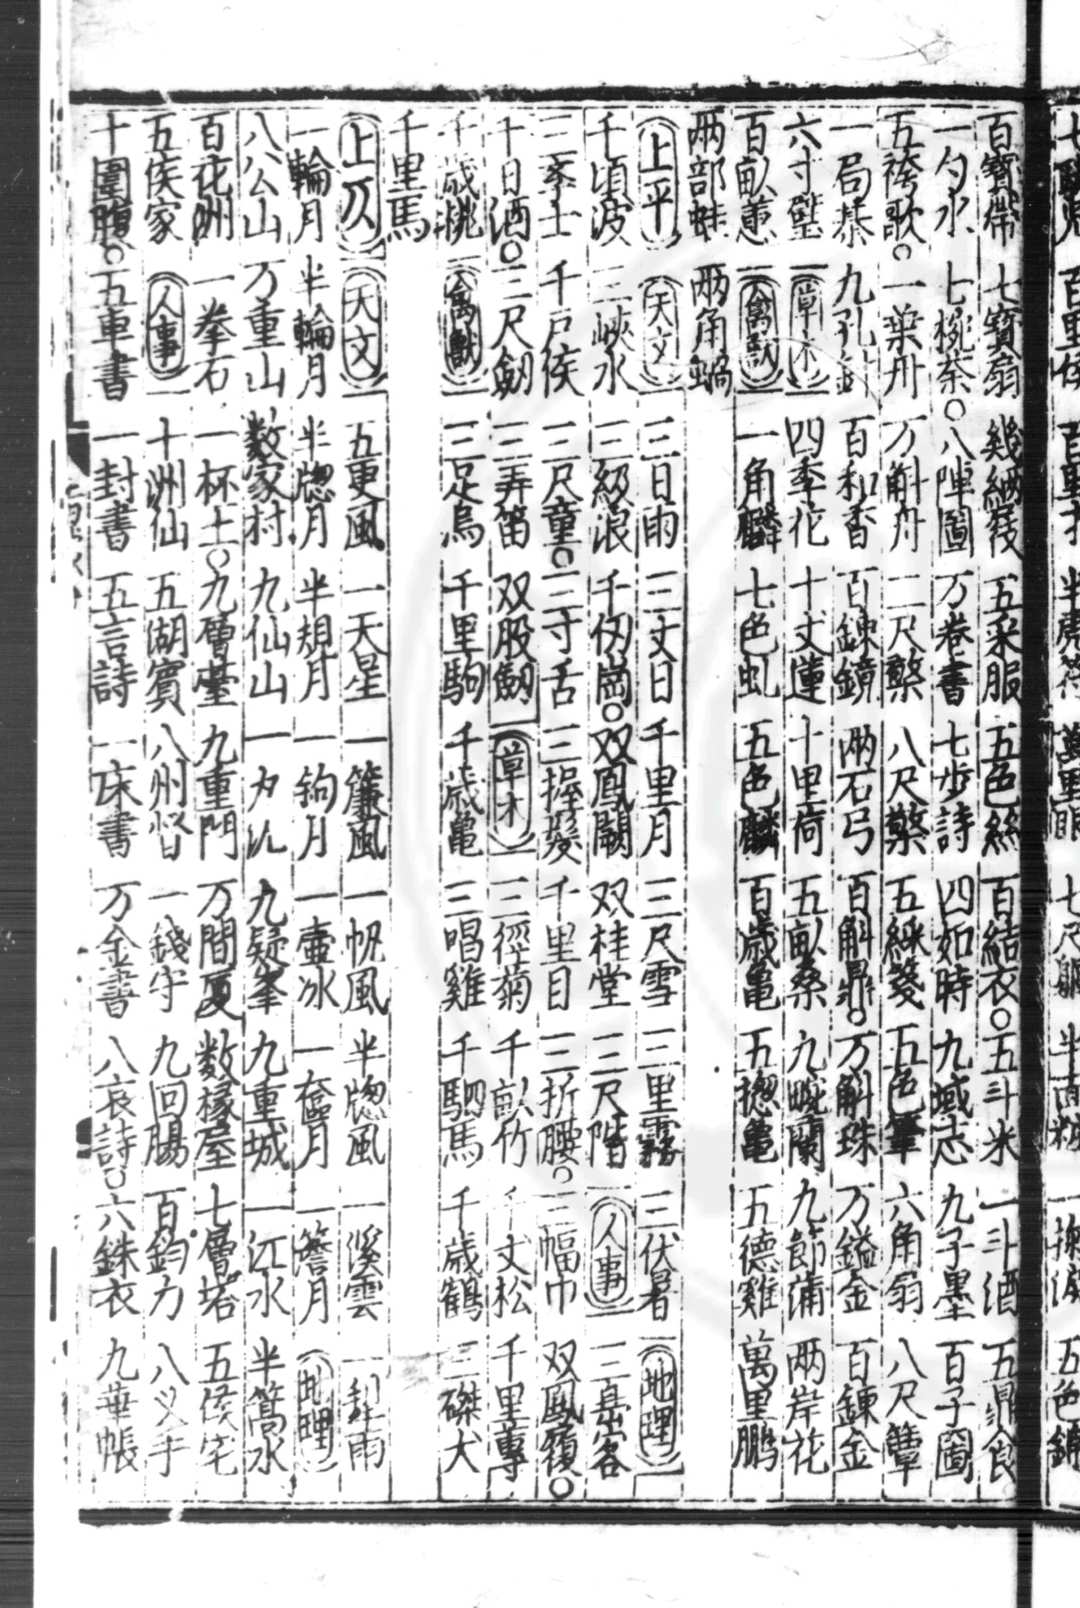 百寶帶 七寶扇 幾緉屐 五采服 五色絲 百結衣○五斗米 一斗酒 五鼎食
一勺水 七椀茶○八陣圖 万卷書 七步詩 四如時 九域志 九子墨 百子圖
五袴歌○一葉舟 万斛舟 二尺檠 八尺檠 五綵箋 五色筆 六角扇 八尺簟
一局棊 九孔針 百和香 百鍊鏡 兩石弓 百斛鼎○万斛珠 万鎰金 百鍊金
六寸璧 草木 四季花 十丈蓮 十里荷 五畝桑 九畹蘭 九節蒲 兩岸花
百畝蕙 禽獸 一角麟 七色虬 五色麟 百歲亀 五揔亀 五德雞 萬里鵬
兩部蛙 兩角蝸
上平 天文 三日雨 三丈日 千里月 三尺雪 三里霧 三伏暑 地理
千頃波 三峽水 三級浪 千仞崗○双鳳闕 双桂堂 三尺階 人事 三嘉客
三季士 千戶侯 三尺童○三寸舌 三握髮 千里目 三折腰○三幅巾 双鳳領○
十日酒○三尺劒 三弄笛 双股劒 草木 三徑菊 千畝竹 千丈松 千里蓴
千歲桃 禽獸 三足烏 千里駒 千歲亀 三唱雞 千駟馬 千歲鶴 三磔犬
千里馬
上仄 天文 五更風 一天星 一簾風 一帆風 半牕風 一溪雲 一犁雨
一輪月 半輪月 半牕月 半規月 一鉤月 一壷冰 一奩月 一簷月 地理
八公山 万重山 数家村 九仙山 一 九疑峯 九重城 一江水 半篙水
百花洲 一拳石 一杯土○九層臺 九重門 万間厦 数椽屋 七層塔 五侯宅
五侯家 人事 十洲仙 五湖賓 八州督 一錢守 九回腸 百鈞力 八义手
十圍腹○五車書 一封書 五言詩 一床書 万金書 八哀詩○六銖衣 九華帳